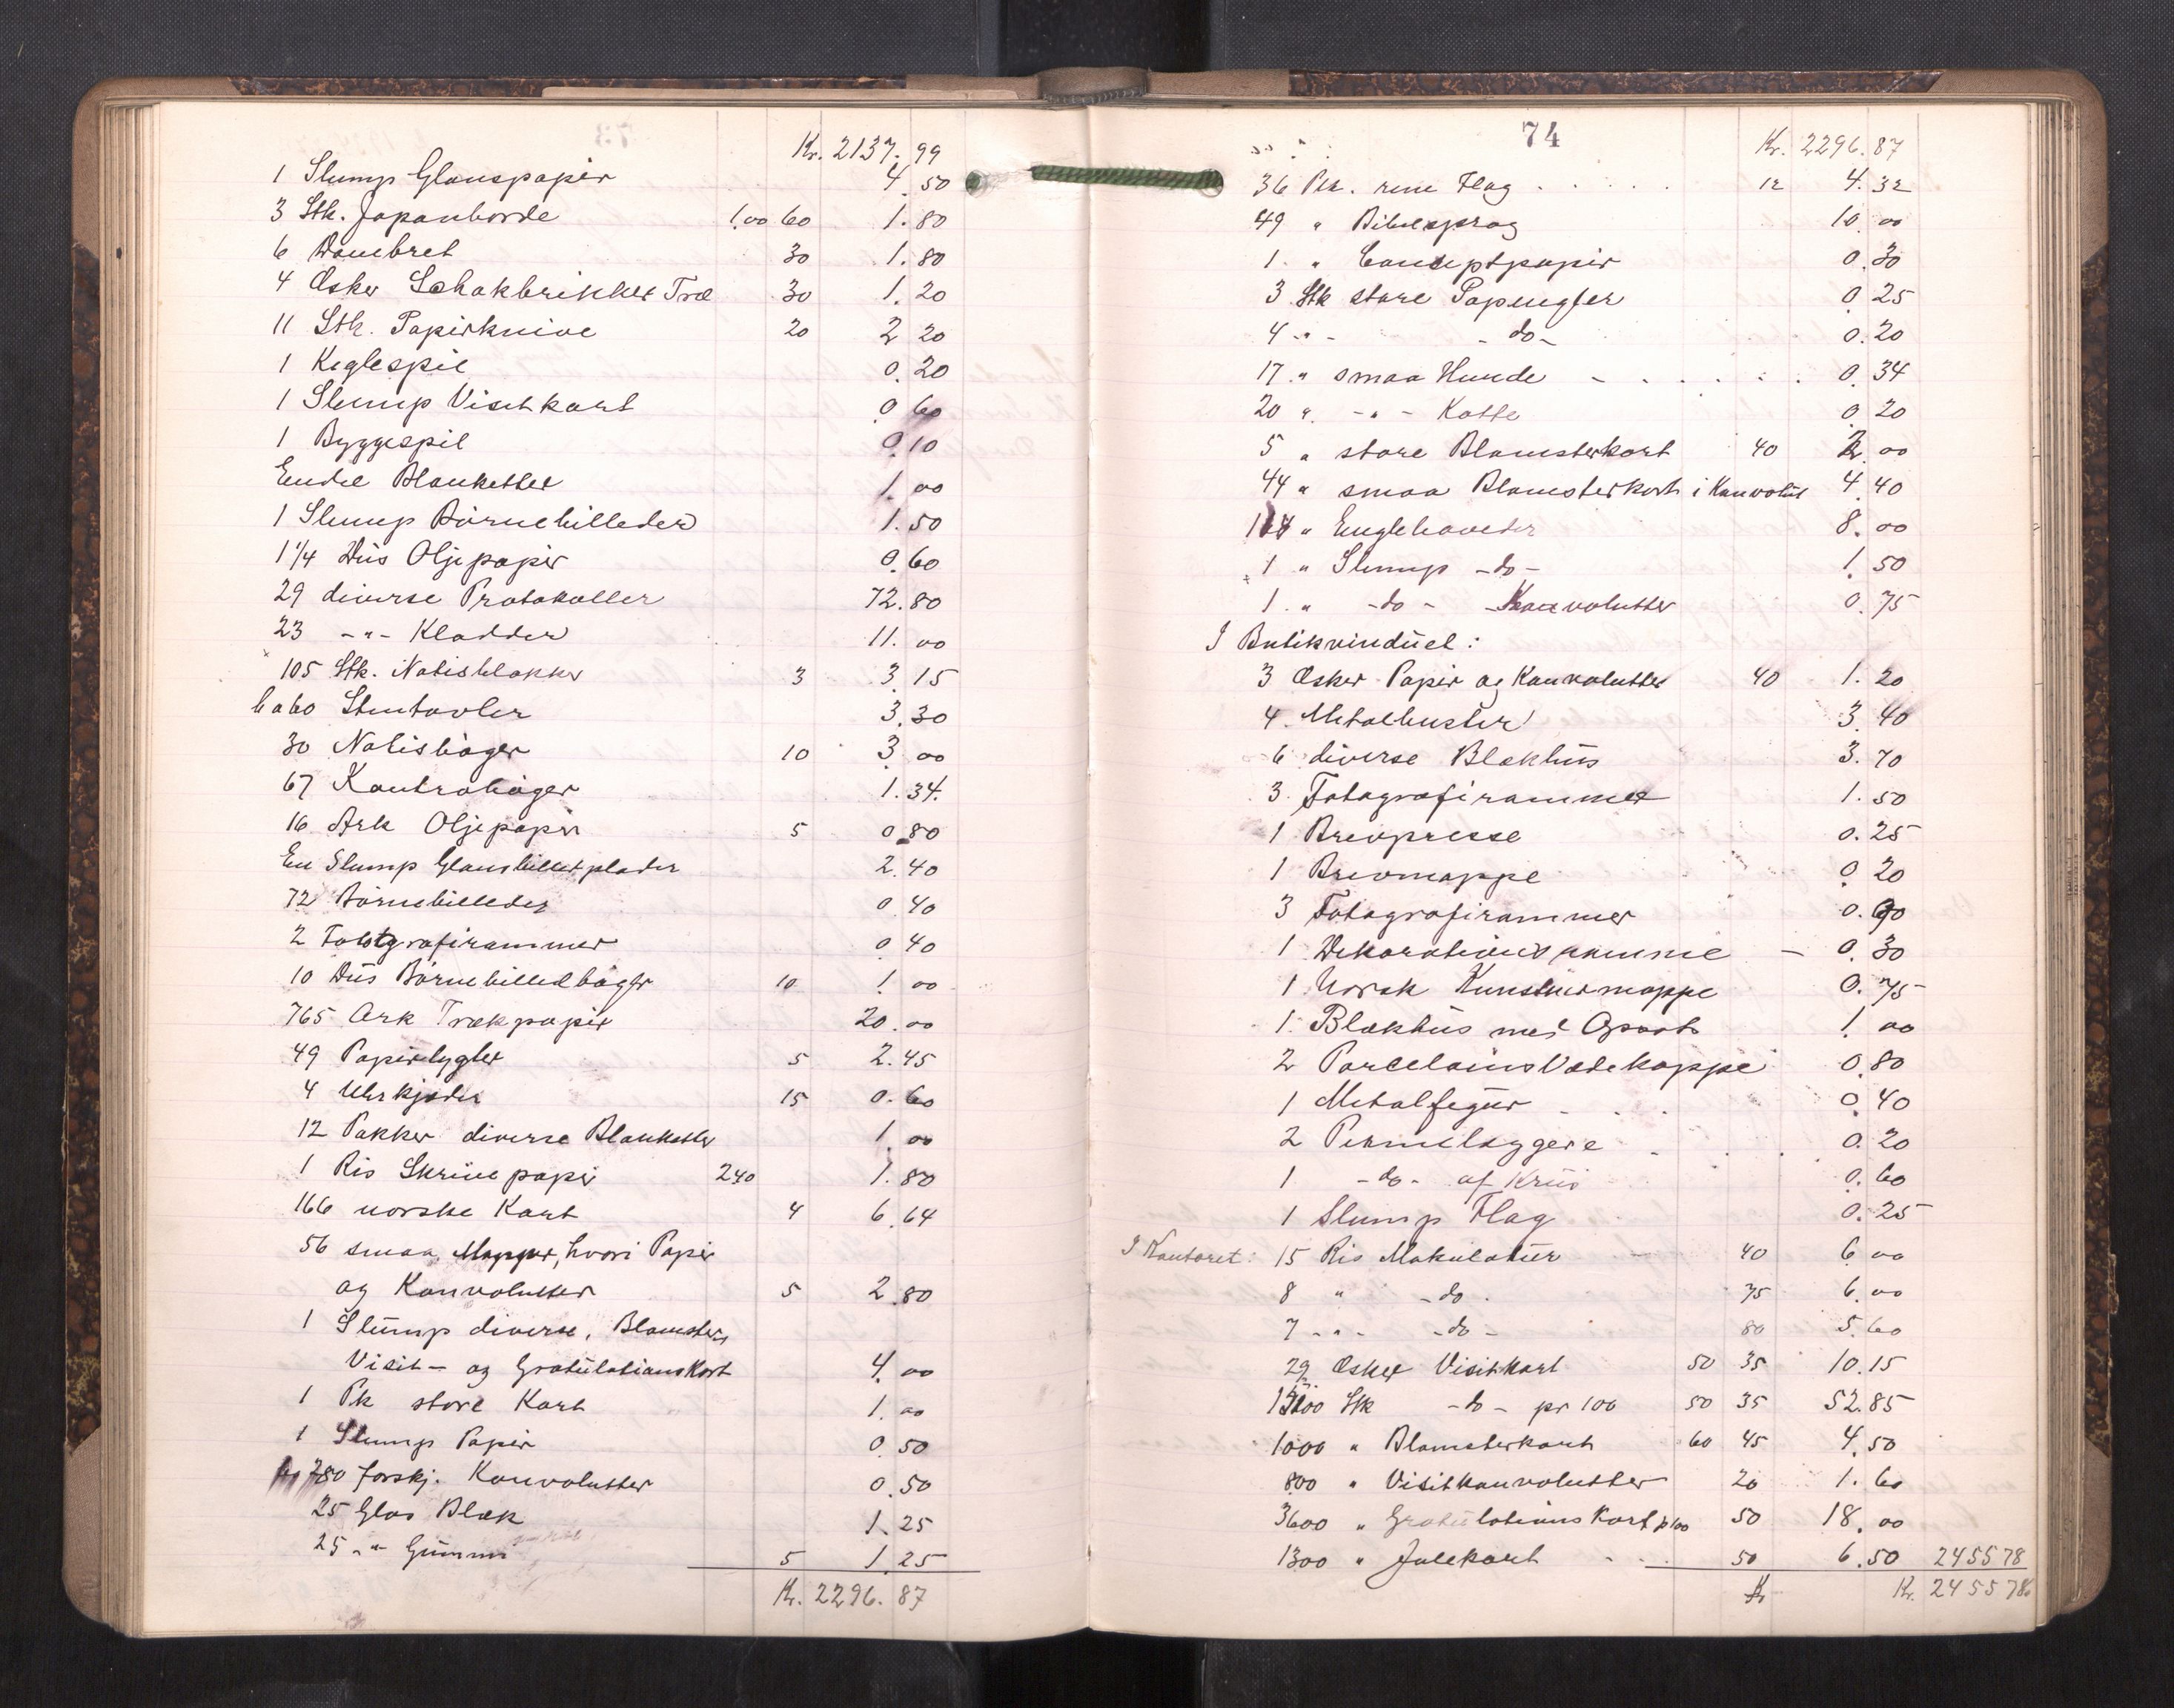 Kr. 2137.99
1 Slump Glanspapir 4.50
3 Stk. Japanborde 1.00 60 1.80
6 Dambret 30 1.80
4 Æsker Schakbrikker Træ 30 1.20
11 Stk. Papirknive 20 2 20
1 Keglespil 0.20
1 Slump Visitkort 0 60
1 Byggespil 0.10
Endel Blanketter 1.00
1 Slump Börnebilleder 1.50
1 1/4 Düs Oljepapir 0.60
29 diverse Protokoller 72.80
23 -"- Kladder 11.00
105 Stk. Notisblokker 3 3.15
6 a 60 Stentavler 3.30
30 Notisböger 10 3 00
67 Kontraböger 1.34.
16 Ark Oljepapir 5 0.80
En Slump Glansbilledplader 2.40
72 Börnebilleder 0.40
2 Fotografirammer 0.40
10 Düs Börnebilledböger 10 1 00
765 Ark Trækpapir 20.00
49 Papirlygter 5 2.45
4 Uhrkjæder 15 0.60
12 Pakker diverse Blanketter 1.00
1 Ris Skrivepapir 240 1.80
166 norske Kort 4 6.64
56 smaa Mapper, hvori Papir
og Konvolutter 5 2.80
1 Slump diverse, Blomster,
Visit- og Gratülationskort 4.00
1 Pk store Kort 1.00
1 Slump Papir 0.50
780 forskj. Konvolutter 0.50
25 Glas Blæk 1.25
25 -"- Gümmi 5 1.25
Kr. 2296.87
74
Kr. 2296.87
36 Pk. rene Flag 12 4.32
49 " Bibelsprog 10.00
1 " Conceptpapir 0.30
3 Stk store Papengler 0.25
4 -"- -do- 0.20
17 " smaa Hunde 0.34
20 " -"- Katte 0.20
5 " store Blomsterkort 40 2.00
44 " smaa Blomsterkort i Konvolut 4.40
" Englehoveder 8.00
1 " Slump -do- 1.50
1 " -do- Konvolutter 0.75
I Butikvindüet:
3 Æsker Papir og Konvolutter 40 1.20
4 Metalbuster 3.40
6 diverse Blækhüs 3.70
3 Fotografirammer 1.50
1 Brevpresse 0.25
1 Brevmappe 0.20
3 Fotografirammer 0.90
1 Dekorationsramme 0.30
1 Norsk Kunstnermappe 0.75
1 Blækhüs med Opsats 1 00
2 Porcelains Vædekoppe 0.80
1 Metalfigür 0.40
2 Penneliggere 0.20
1 -do- af Krüs 0.60
1 Slump Flag 0.25
I Kontoret: 15 Ris Makulatür 40 6.00
8 " -do. 75 6.00
7 -"- -do- 80 5.60
29 Æsker Visitkort 50 35 10.15
15100 Stk -do- pr 100 50 35 52.85
1000 " Blomsterkort 60 45 4.50
800 " Visitkonvolutter 20 1.60
3600 " Gratülations Kort p 100 50 18.00
1300 " Julekort 50 6.50 2455 78
Kr Kr. 2455 78